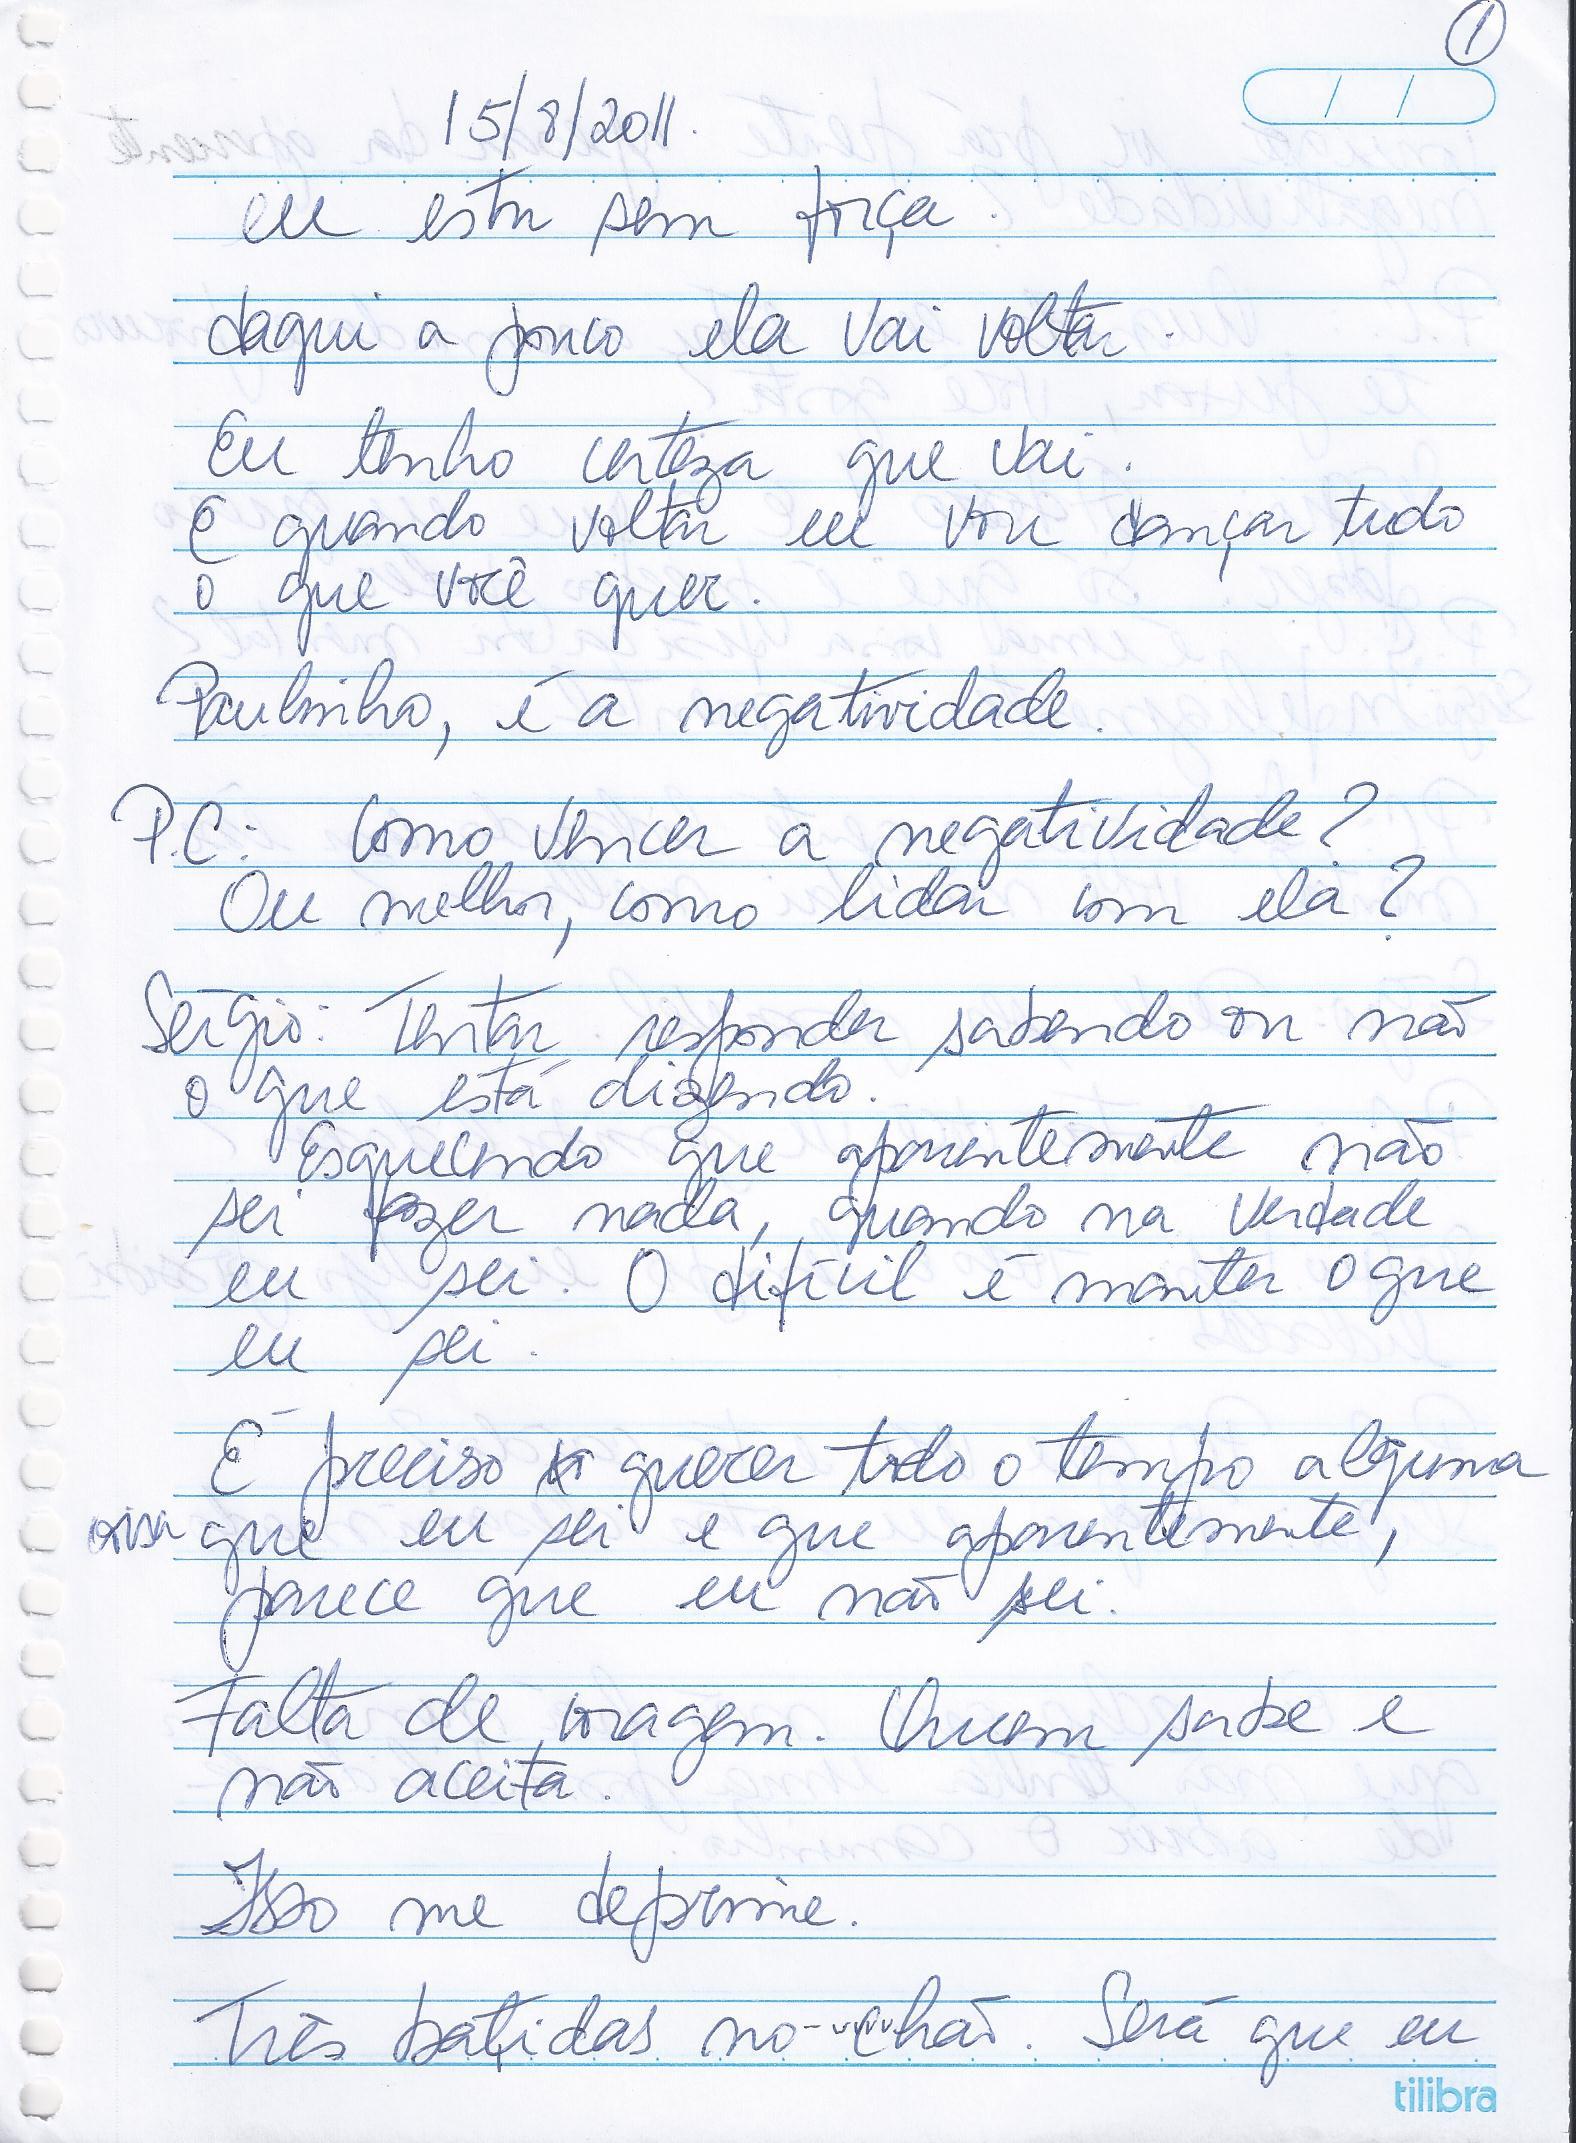 1
15/8/2011.
eu estou sem força.
daqui a pouco ela vai voltar.
Eu tenho certeza que vai.
E quando voltar eu vou dançar tudo
o que você quer.
Paulinho, é a negatividade.
P.C: Como vencer a negatividade?
Ou melhor, como lidar com ela?
Sérgio: Tentar responder sabendo ou não
o que está dizendo.
Esquecendo que aparentemente não
sei fazer nada, quando na verdade
eu sei. O difícil é manter o que
eu sei.
É preciso querer todo o tempo alguma
coisa que eu sei e que aparentemente,
parece que eu não sei.
Falta de coragem. Quem sabe e
não aceita.
Isso me deprime.
Três batidas no chão. Será que eu
tilibra